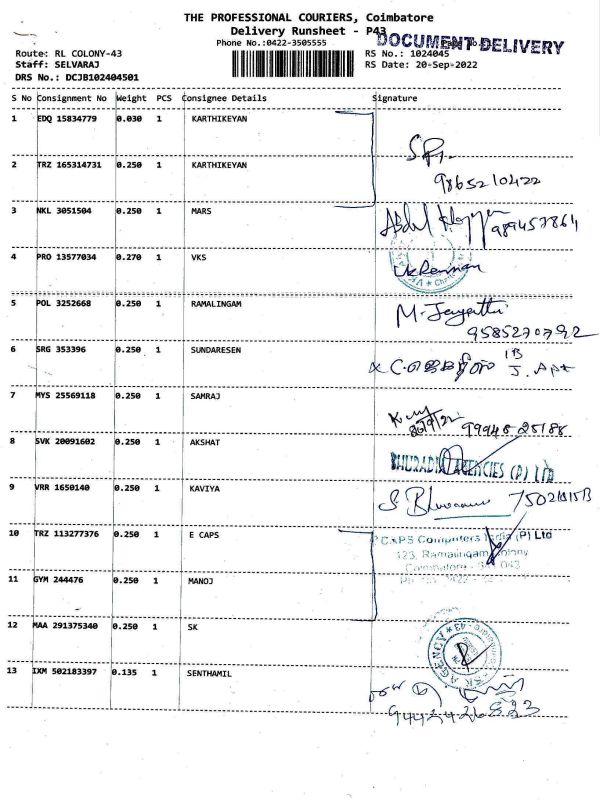 THE PROFESSIONAL COURIERS, Coimbatore
Delivery Runsheet - P43
Phone No.:0422-3505555
DOCUMENT DELIVERY
Route: RL COLONY-43
RS No.: 1024045
Staff: SELVARAJ
RS Date: 20-Sep-2022
DRS No.: DCJB102404501
S No Consignment No Weight PCS Consignee Details Signature
1 EDQ 15834779 0.030 1 KARTHIKEYAN
2 TRZ 165314731 0.250 1 KARTHIKEYAN
9865210422
3 NKL 3051504 0.250 1 MARS
Abdul
989457864
4 PRO 13577034 0.270 1 VKS
5 POL 3252668 0.250 1 RAMALINGAM
M. Jayanthi
9585270792
6 SRG 353396 0.250 1 SUNDARESEN
7 MYS 25569118 0.250 1 SAMRAJ
20/9/22 9994525188
8 SVK 20091602 0.250 1 AKSHAT
AGENCIES (P) Ltd
9 VRR 1650140 0.250 1 KAVIYA
10 TRZ 113277376 0.250 1 E CAPS
CAPS Computers India (P) Ltd
123, Ramalingam Colony
Coimbatore - 641 043
11 GYM 244476 0.250 1 MANOJ
12 MAA 291375340 0.250 1 SK
SK AGENCY
13 IXM 502183397 0.135 1 SENTHAMIL